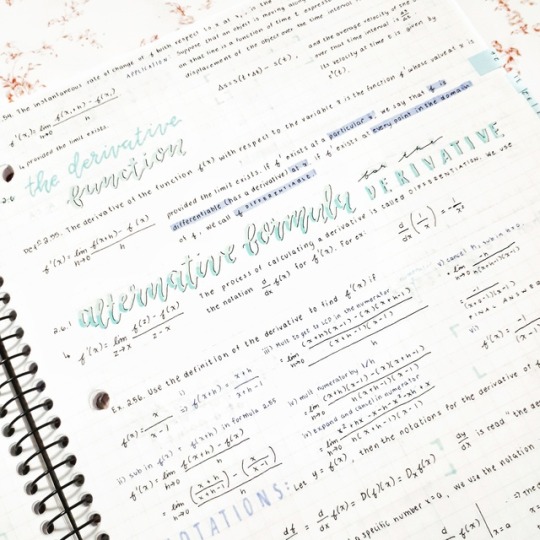 The instantaneous rate of change of f with respect to x at
f'(x) = lim h→0 f(x+h) - f(x) / h
provided the limit exists.
APPLICATION: suppose that an object is moving along
on that line is a function of time t, expressed
displacement of the object over the time interval
Δs = s(t+Δt) - s(t).
and the average velocity of the
over that time interval is Δs/Δt
its velocity at time t is given by
s'(t).
the derivative
function
Def 2.55. The derivative of the function f(x) with respect to the variable x is the function f' whose value at x is
f'(x) = lim h→0 f(x+h) - f(x) / h
provided the limit exists. If f' exists at a particular x, we say that f is
differentiable (has a derivative) at x. If f' exists at every point in the domain
of f, we call f DIFFERENTIABLE
2.6.1 alternative formula for the DERIVATIVE
f'(x) = lim z→x f(z) - f(x) / z - x
The process of calculating a derivative is called DIFFERENTIATION. We use
the notation d/dx f(x) for f'(x). For ex:
d/dx (1/x) = -1/x²
Ex. 2.56: Use the definition of the derivative to find f'(x) if
f(x) = x / x-1
i) f(x+h) = x+h / x+h-1
ii) sub in f(x) & f(x+h) in formula 2.55
f'(x) = lim h→0 f(x+h) - f(x) / h
= lim h→0 (x+h / x+h-1) - (x / x-1) / h
iii) mult to get to LCD in the numerator
= lim h→0 (x+h)(x-1) - (x)(x+h-1) / (x+h-1)(x-1) / h
iv) mult numerator by 1/h
= lim h→0 (x+h)(x-1) - (x)(x+h-1) / h(x+h-1)(x-1)
v) expand and cancel in numerator
= lim h→0 x²+hx-x-h-x²-xh+x / h(x+h-1)(x-1)
cancel h, sub in h=0,
= lim h→0 -h / h(x+h-1)(x-1)
-1 / (x+0-1)(x-1)
FINAL ANSWER
vi)
f'(x) = -1
NOTATIONS:
Let y = f(x), then the notations for the derivative of f
df/dx = d/dx f(x) = D(f)(x) = Dₓf(x)
dy/dx is read "the de
a specific number x=a, we use the notation
x=a